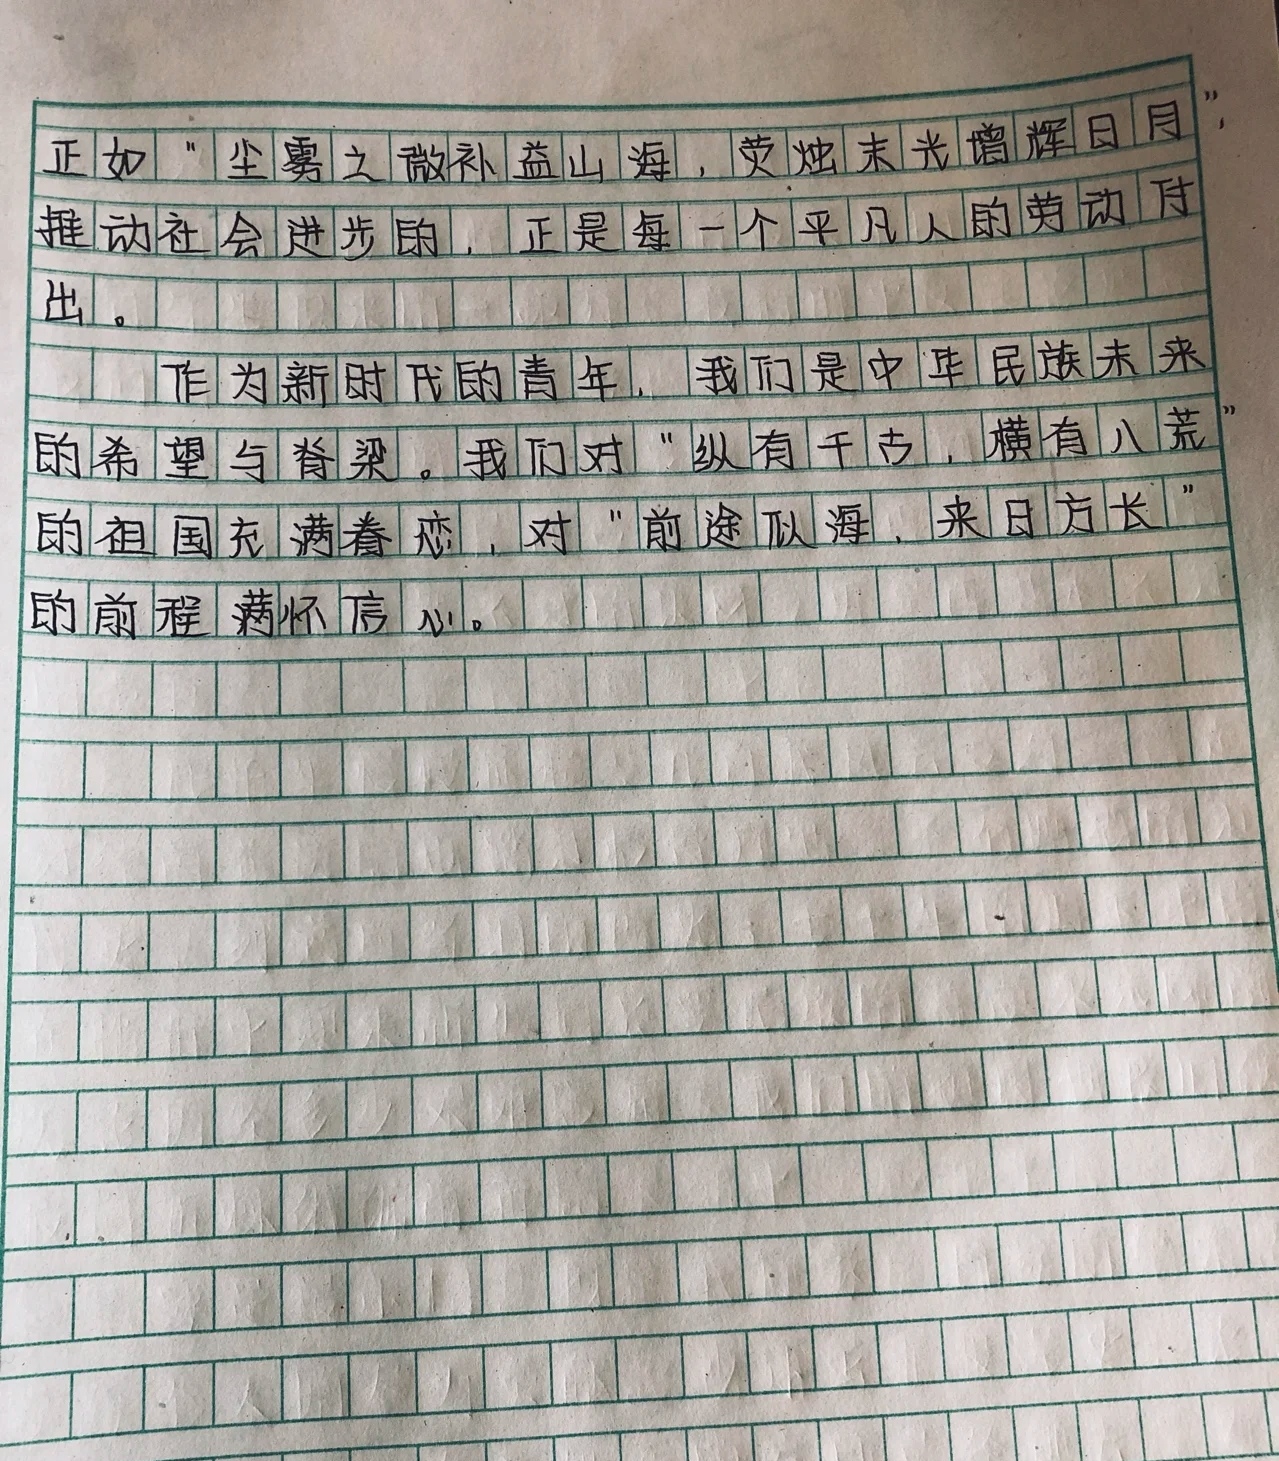 正如“尘雾之微补益山海，荧烛末光增辉日月”，
推动社会进步的，正是每一个平凡人的劳动付
出。
作为新时代的青年，我们是中华民族未来
的希望与脊梁。我们对“纵有千古，横有八荒”
的祖国充满眷恋，对“前途似海，来日方长”
的前程满怀信心。